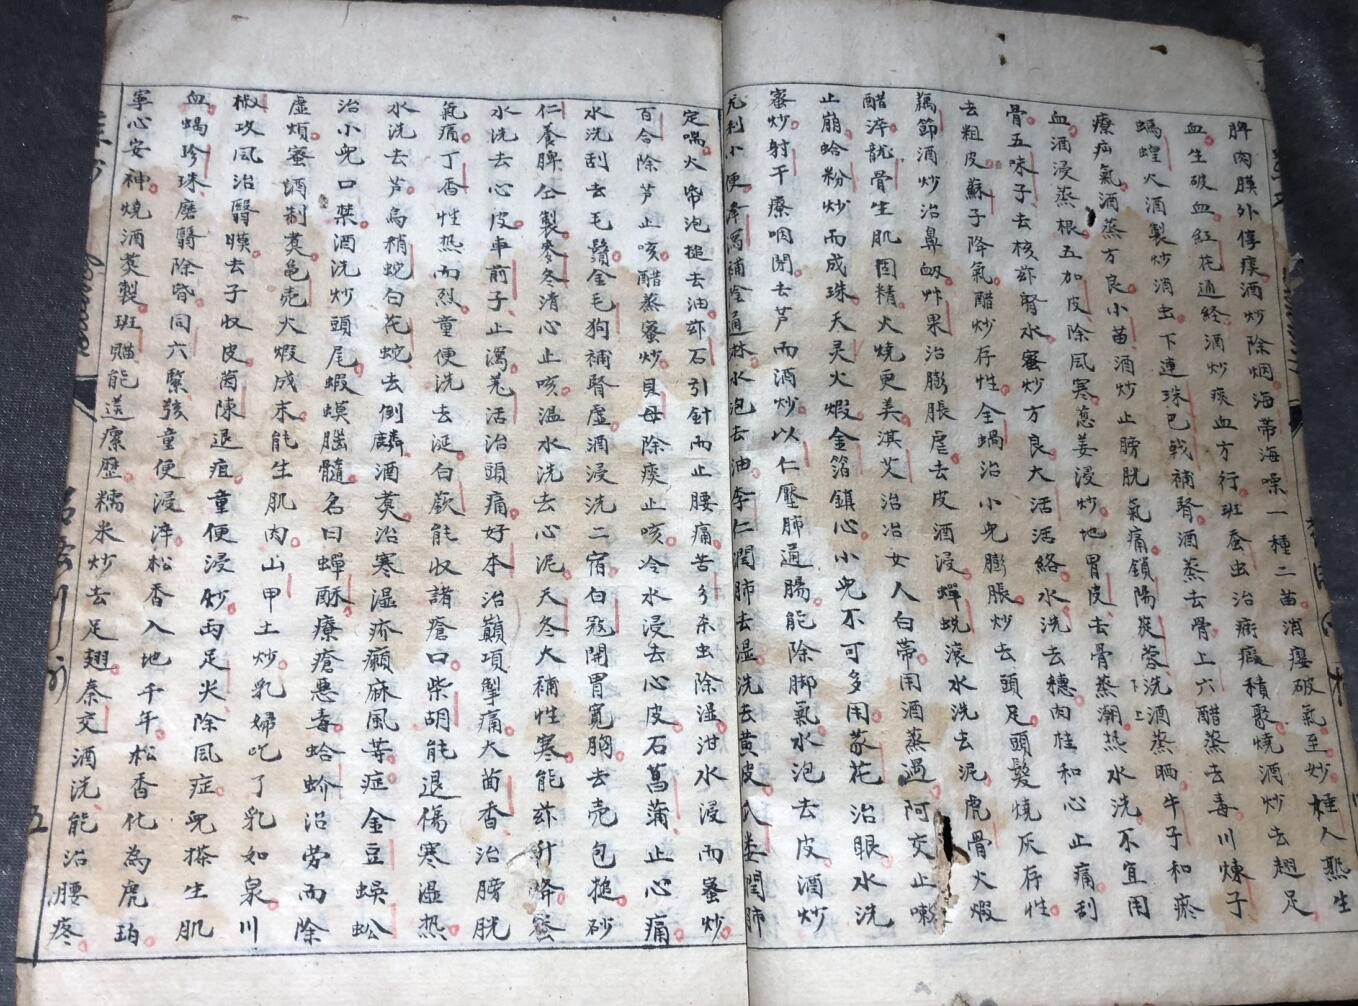 脾肉膜外停痰酒炒除烟海蒂海嘌一種二苗消癭破氣至妙種人熟生
血生破血紅花通經酒炒痰血方行班蚕虫治痂瘕積聚燒酒炒去翅足
螞蝗火酒製炒消出下連珠巴戟補腎酒蒸去骨上六醋蒸去毒川煉子
療疝氣酒蒸方良小苗酒炒止膀胱氣痛鎖陽蓯蓉洗酒蒸晒牛子和瘀
血酒浸蒸根五加皮除風寒葱姜浸炒地胃皮去骨蒸潮热水洗不宜用
骨五味子去核兹腎水蜜炒方良大活活絡水洗去穗肉桂和心止痛刮
去粗皮蘇子降氣醋炒存性全蝎治小兒膨脹炒去頭足頭髮燒灰存性
藕節酒炒治鼻衂艸果治膨脹虐去皮酒浸蟬蛻滚水洗去泥虎骨火煆
醋淬龍骨生肌固精火燒更美淇艾治治女人白帶用酒蒸過阿交止嗽
止崩蛤粉炒而成珠天灵火煆金箔鎮心小兒不可多用蒙花治眼水洗
蜜炒射干療咽閉去芦而酒炒以仁壓肺通腸能除脚氣水泡去皮酒炒
元利小便澤瀉補陰通淋水泡去油李仁潤肺去湿洗去黄皮氏娄潤肺
定喘火帋泡搥去油兹石引針而止腰痛苦參杀虫除湿泔水浸而蜜炒
百合除芦止咳醋蒸蜜炒貝母除痰止咳冷水浸去心皮石菖蒲止心痛
水洗刮去毛鬚金毛狗補腎虛酒浸洗二宿白蔻開胃寛胸去壳包搥砂
仁養脾仝製麥冬清心止咳温水洗去心泥天冬大補性寒能兹升降蜜
水洗去心皮車前子止瀉羌活治頭痛好本治巔項掣痛大茴香治膀胱
氣痛丁香性热而烈童便洗去涎白蘞能収諸瘡口柴胡能退傷寒温热
水洗去芦烏稍蛇白花蛇去倒麟酒煑治寒湿疥癩麻風等症金豆蜈蚣
治小兒口禁酒洗炒頭尾蝦蟆腦髓名曰蟬酥療瘡悪毒蛤蚧治劳而除
虛煩蜜酒制煑龟壳火煆成末能生肌肉山甲土炒乳婦吃了乳如泉川
椒攻風治翳膜去子収皮茵陳退疸童便浸炒雨足尖除風症兒搽生肌
血蝎珍珠磨翳除昏同六緊弦童便浸淬松香入地千年松香化為虎珀
寧心安神燒酒煑製班貓能送瘰歷糯米炒去足翅秦交酒洗能治腰疼
五